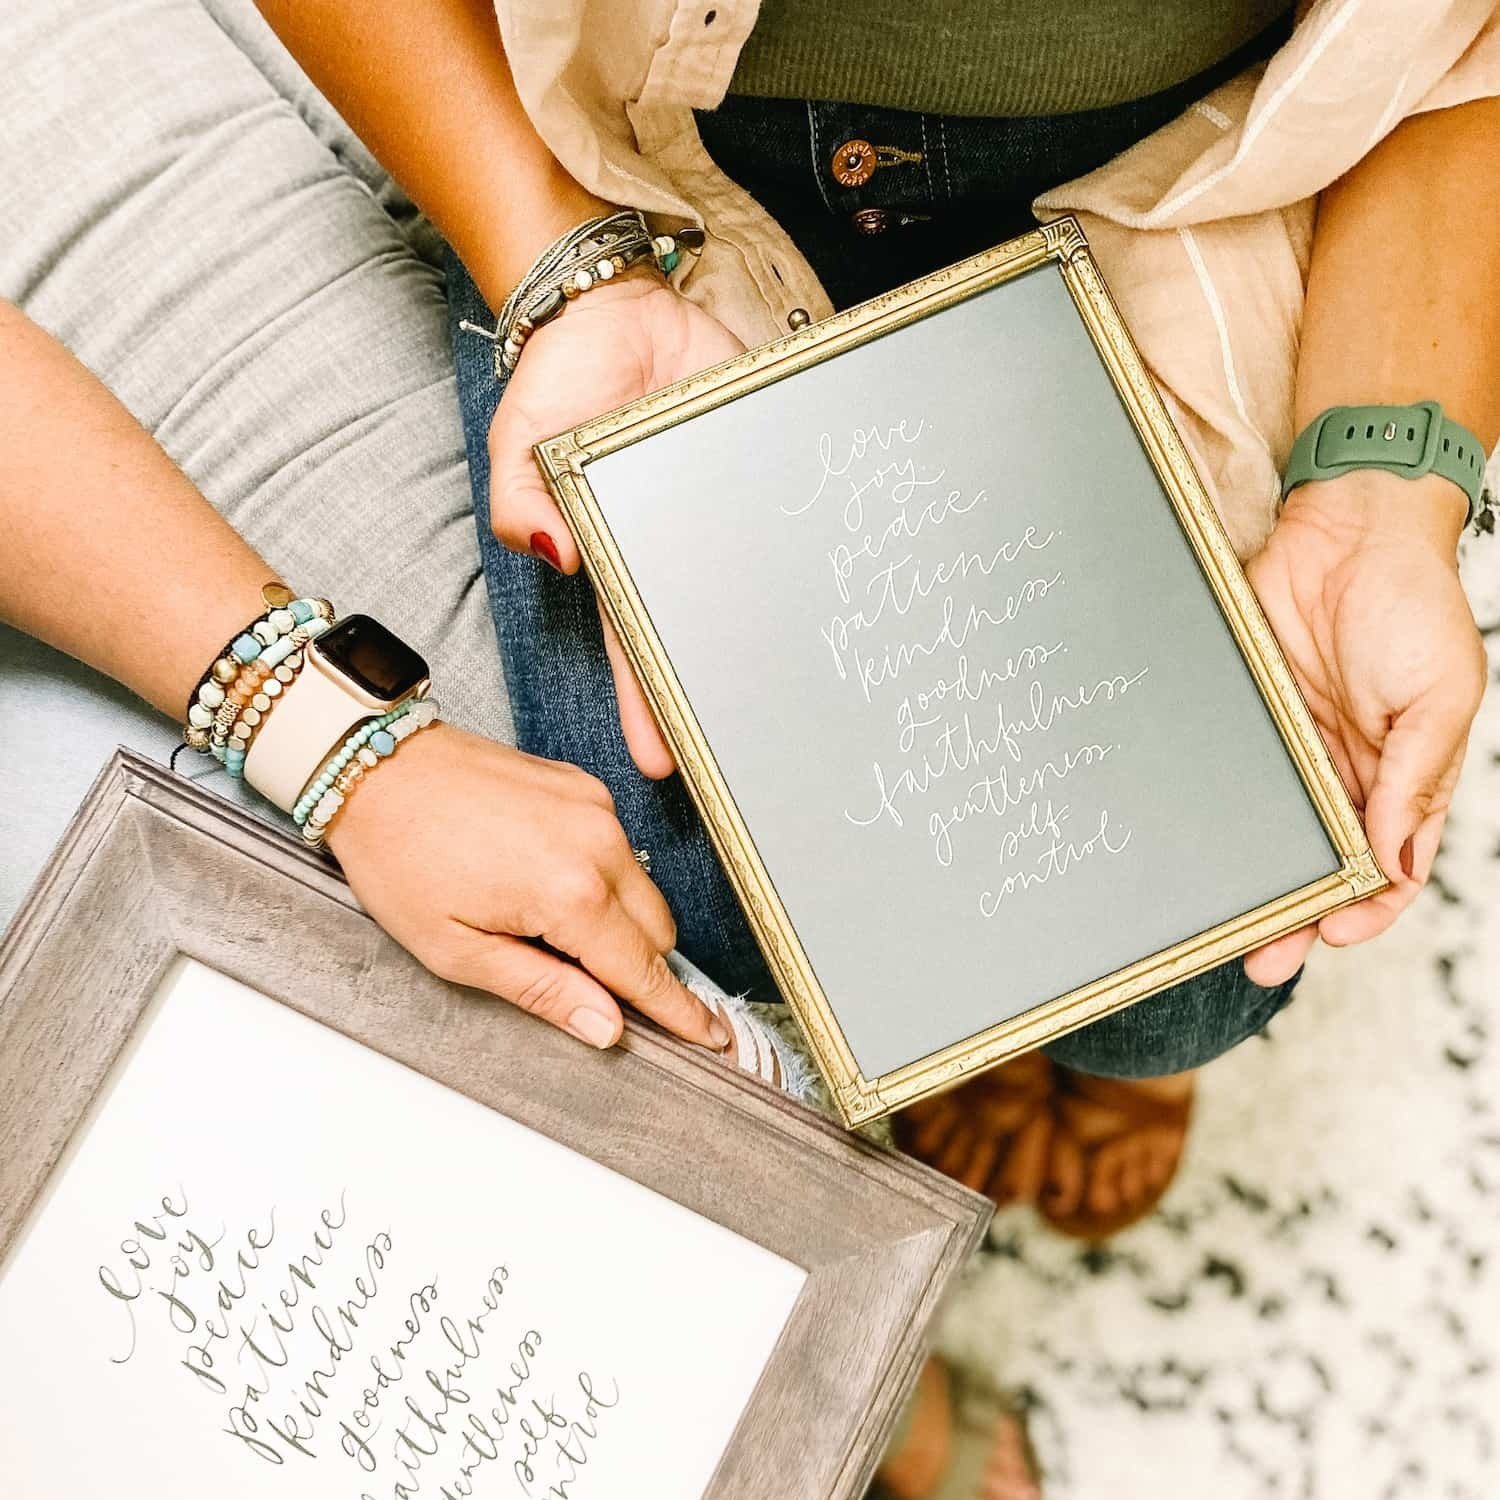 love.
joy.
peace.
patience.
kindness.
goodness.
faithfulness.
gentleness.
self-
control.
love
joy
peace
patience
kindness
goodness
aithfulness
entleness
self
ntrol